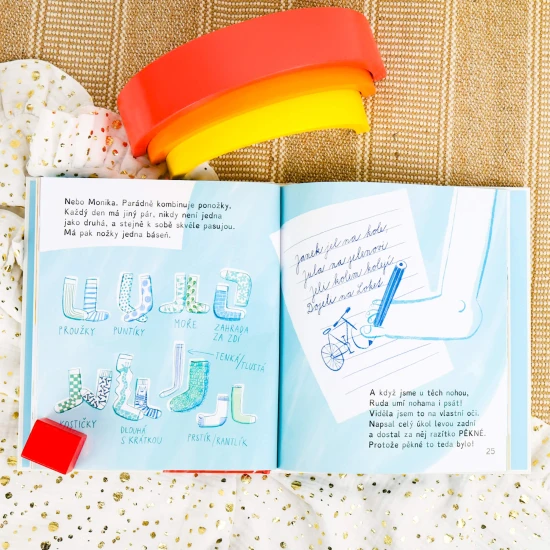 Nebo Monika. Parádně kombinuje ponožky.
Každý den má jiný pár, nikdy není jedna
jako druhá, a stejně k sobě skvěle pasujou.
Má pak nožky jedna báseň.
PROUŽKY
PUNTÍKY
MOŘE
ZAHRADA
ZA ZDÍ
TENKÁ/TLUSTÁ
KOSTIČKY
DLOUHÁ
S KRÁTKOU
PRSTÍK/KANILÍK
Janek jel na kole,
Jula na jelenovi
Jeli kolem kolejí
Dojeli na Loket
A když jsme u těch nohou,
Ruda umí nohama i psát!
Viděla jsem to na vlastní oči.
Napsal celý úkol levou zadní
a dostal za něj razítko PĚKNÉ.
Protože pěkné to teda bylo!
25